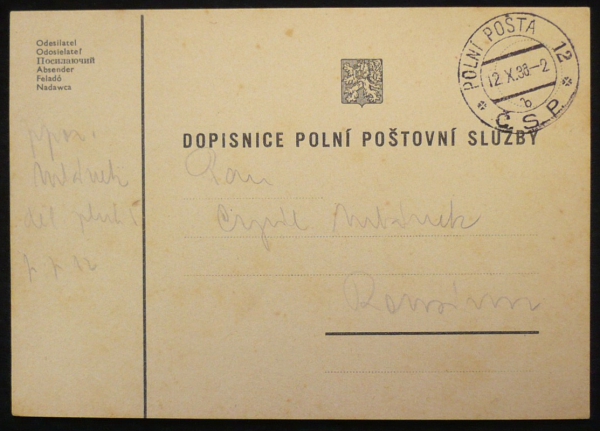 Odesílatel
Odosielateľ
Посилаючий
Absender
Feladó
Nadawca
POLNÍ POŠTA 12
12.X.38-2
b
Č.S.P.
DOPISNICE POLNÍ POŠTOVNÍ SLUŽBY
Pan
Urbánek
Cyril Urbánek
p p 12